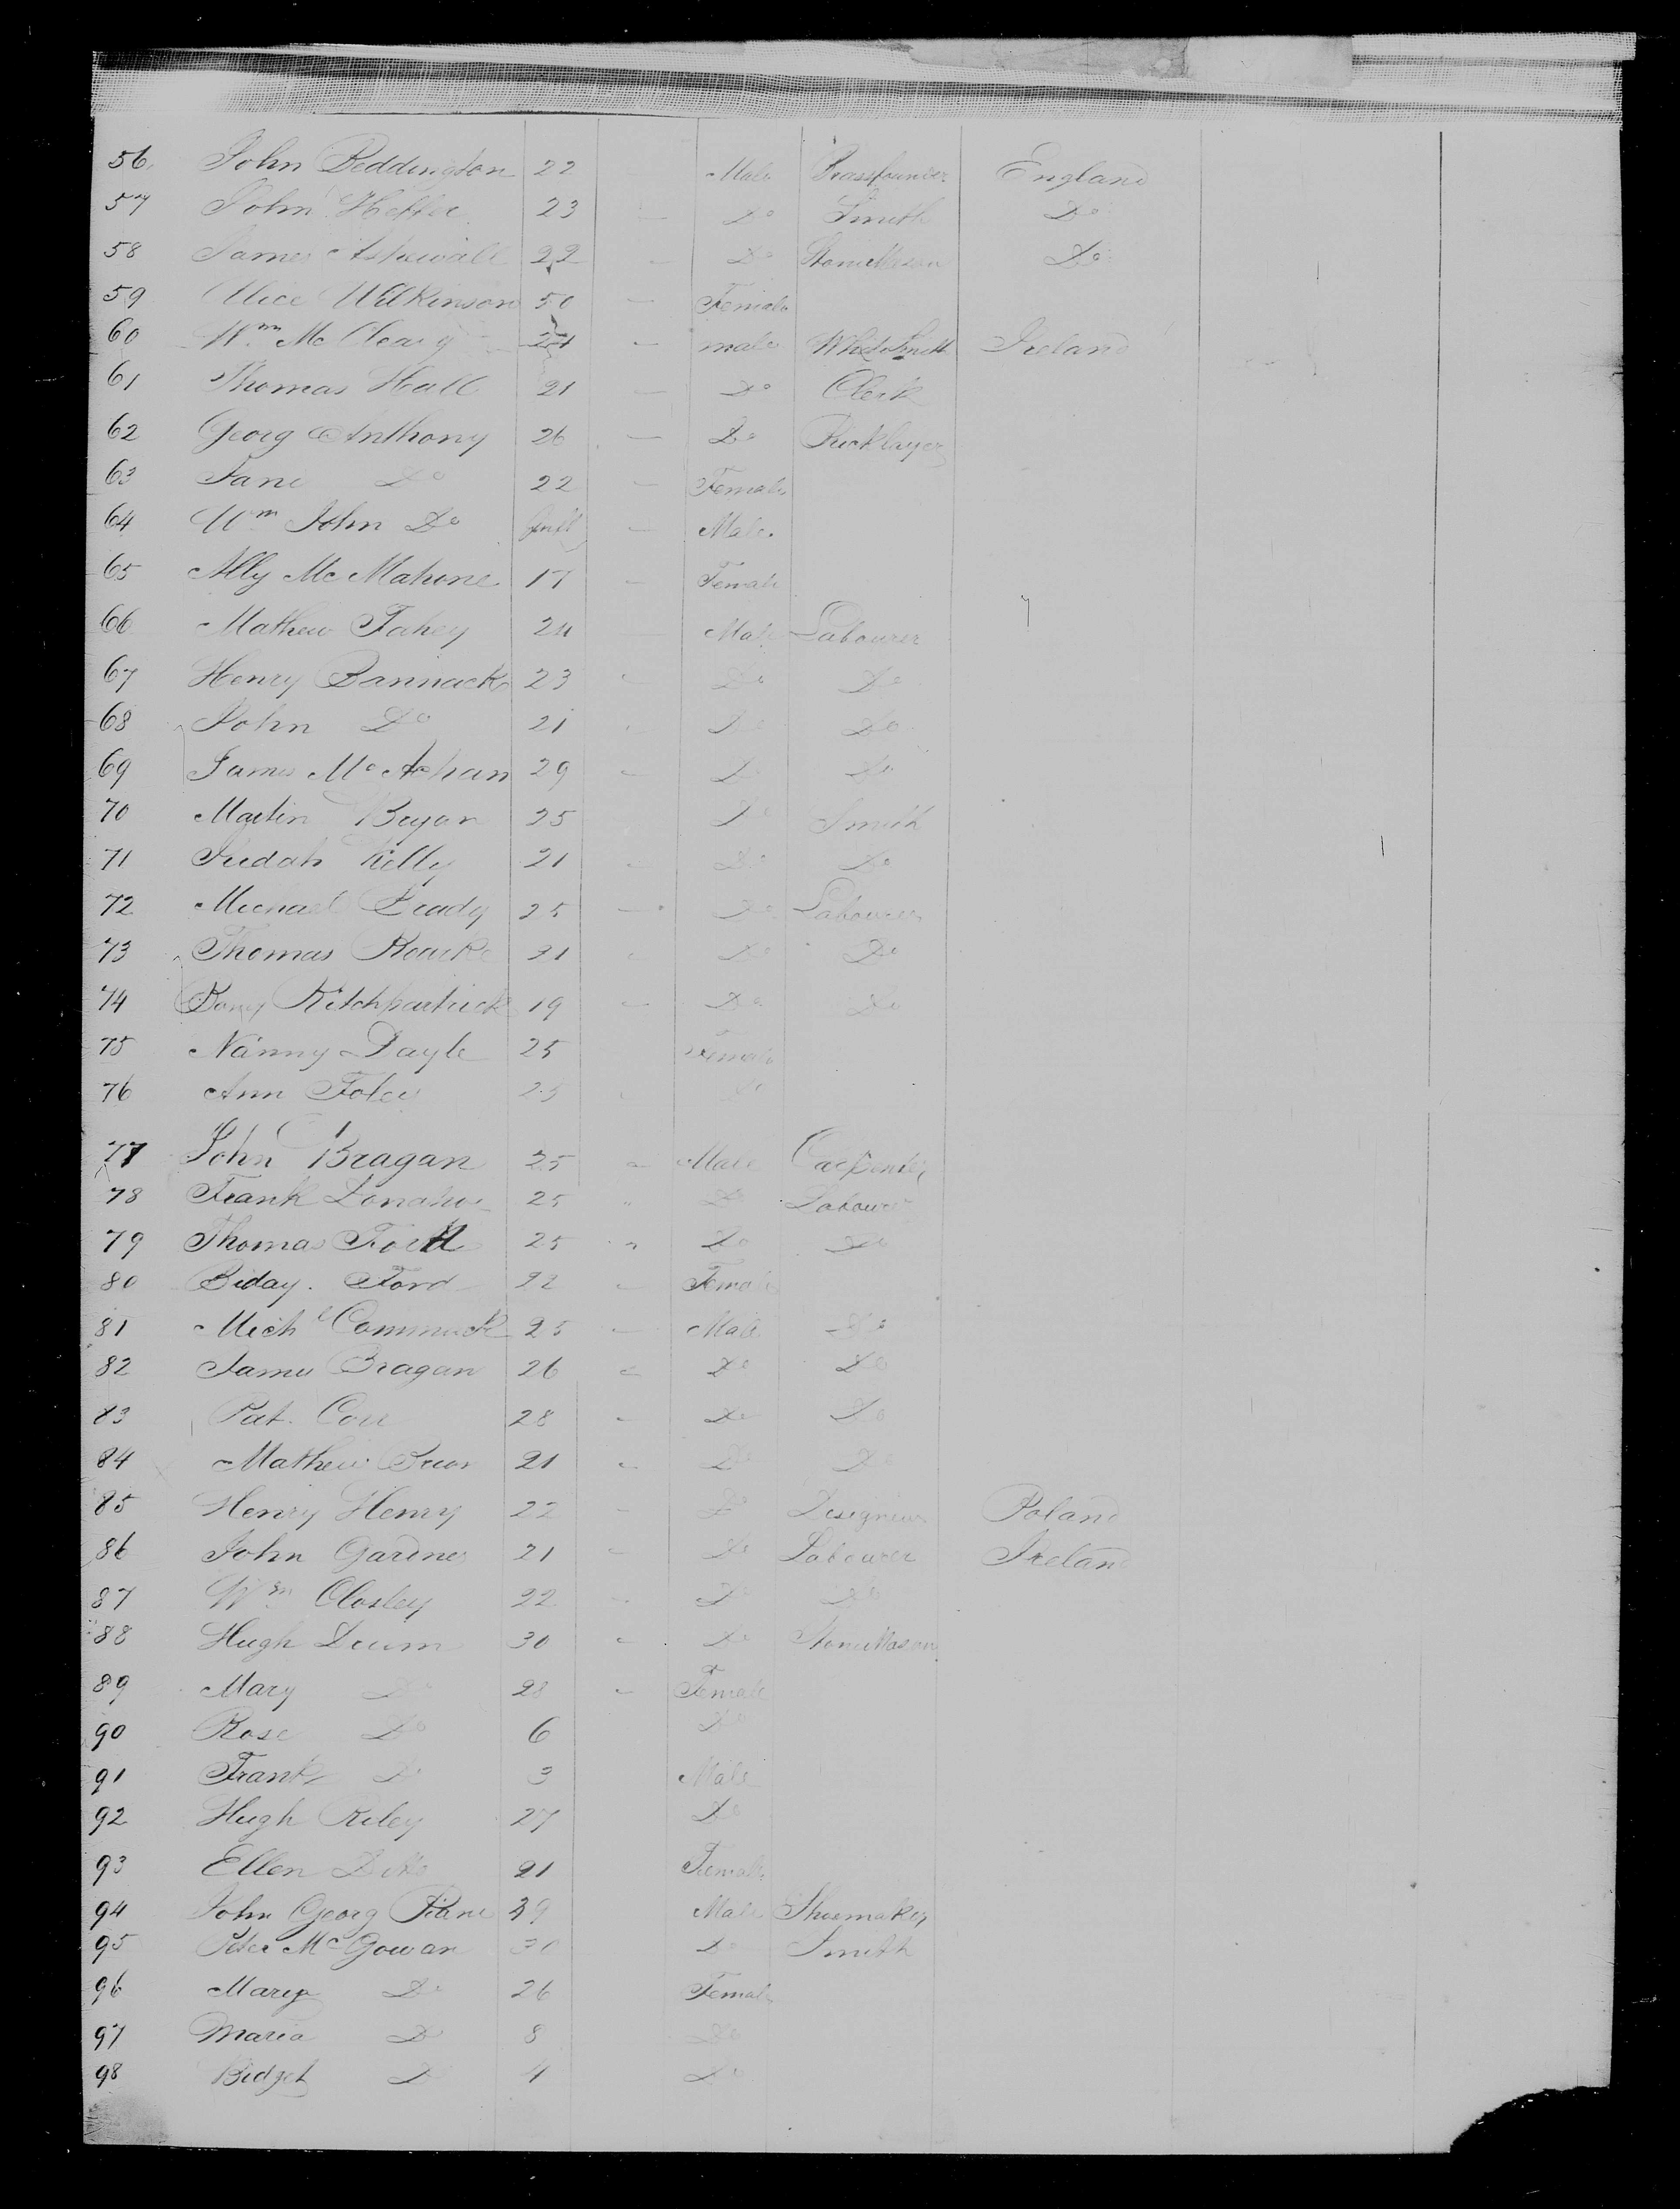 56. John Beddington 22 Male Brassfounder England
57 John Heffer 23 Do Smith Do
58 James Askwall 22 Do Stone Mason Do
59 Alice Wilkinson 50 Female
60 Wm McCleary 24 male White Smith Ireland
61 Thomas Hall 21 Do Clerk
62 Georg Anthony 26 Do Bricklayer
63 Jane Do 22 Female
64 Wm John Do Inft Male.
65 Ally McMahone 17 Female
66 Mathew Fahey 24 Male Labourer
67 Henry Bannack 23 Do Do
68 John Do 21 Do Do
69 James Mc 29 Do Do
70 Martin Bryan 25 Do Smith
71 Judah Kelly 21 Do Do
72 Michael Grady 25 Do Labourer
73 Thomas Roarke 31 Do Do
74 Kitchpartrick 19 Do Do
75 Nanny Dayle 25 Female
76 Ann Foley 25 Do
77 John Bragan 25 Male Carpenter
78 Frank Donahue 25 Do Labourer
79 Thomas Ford 25 Do Do
80 Biday. Ford 22 Female
81 Michl Cammack 25 Male Do
82 James Bragan 26 Do Do
83 Pat. Corr 28 Do Do
84 Mathew Brior 21 Do Do
85 Henry Henry 22 Do Designeur Poland
86 John Gardner 21 Do Labourer Ireland
87 Wm Closley 22 Do Do
88 Hugh Drum 30 Do Stone Mason
89 Mary Do 28 Female
90 Rose Do 6 Do
91 Frank Do 3 Male
92 Hugh Riley 27 Do
93 Ellen Ditto 21 Female
94 John Georg 39 Male Shoemaker
95 Peter McGowan 30 Do Smith
96 Mary Do 26 Female
97 Maria Do 8 Do
98 Bidget Do 4 Do